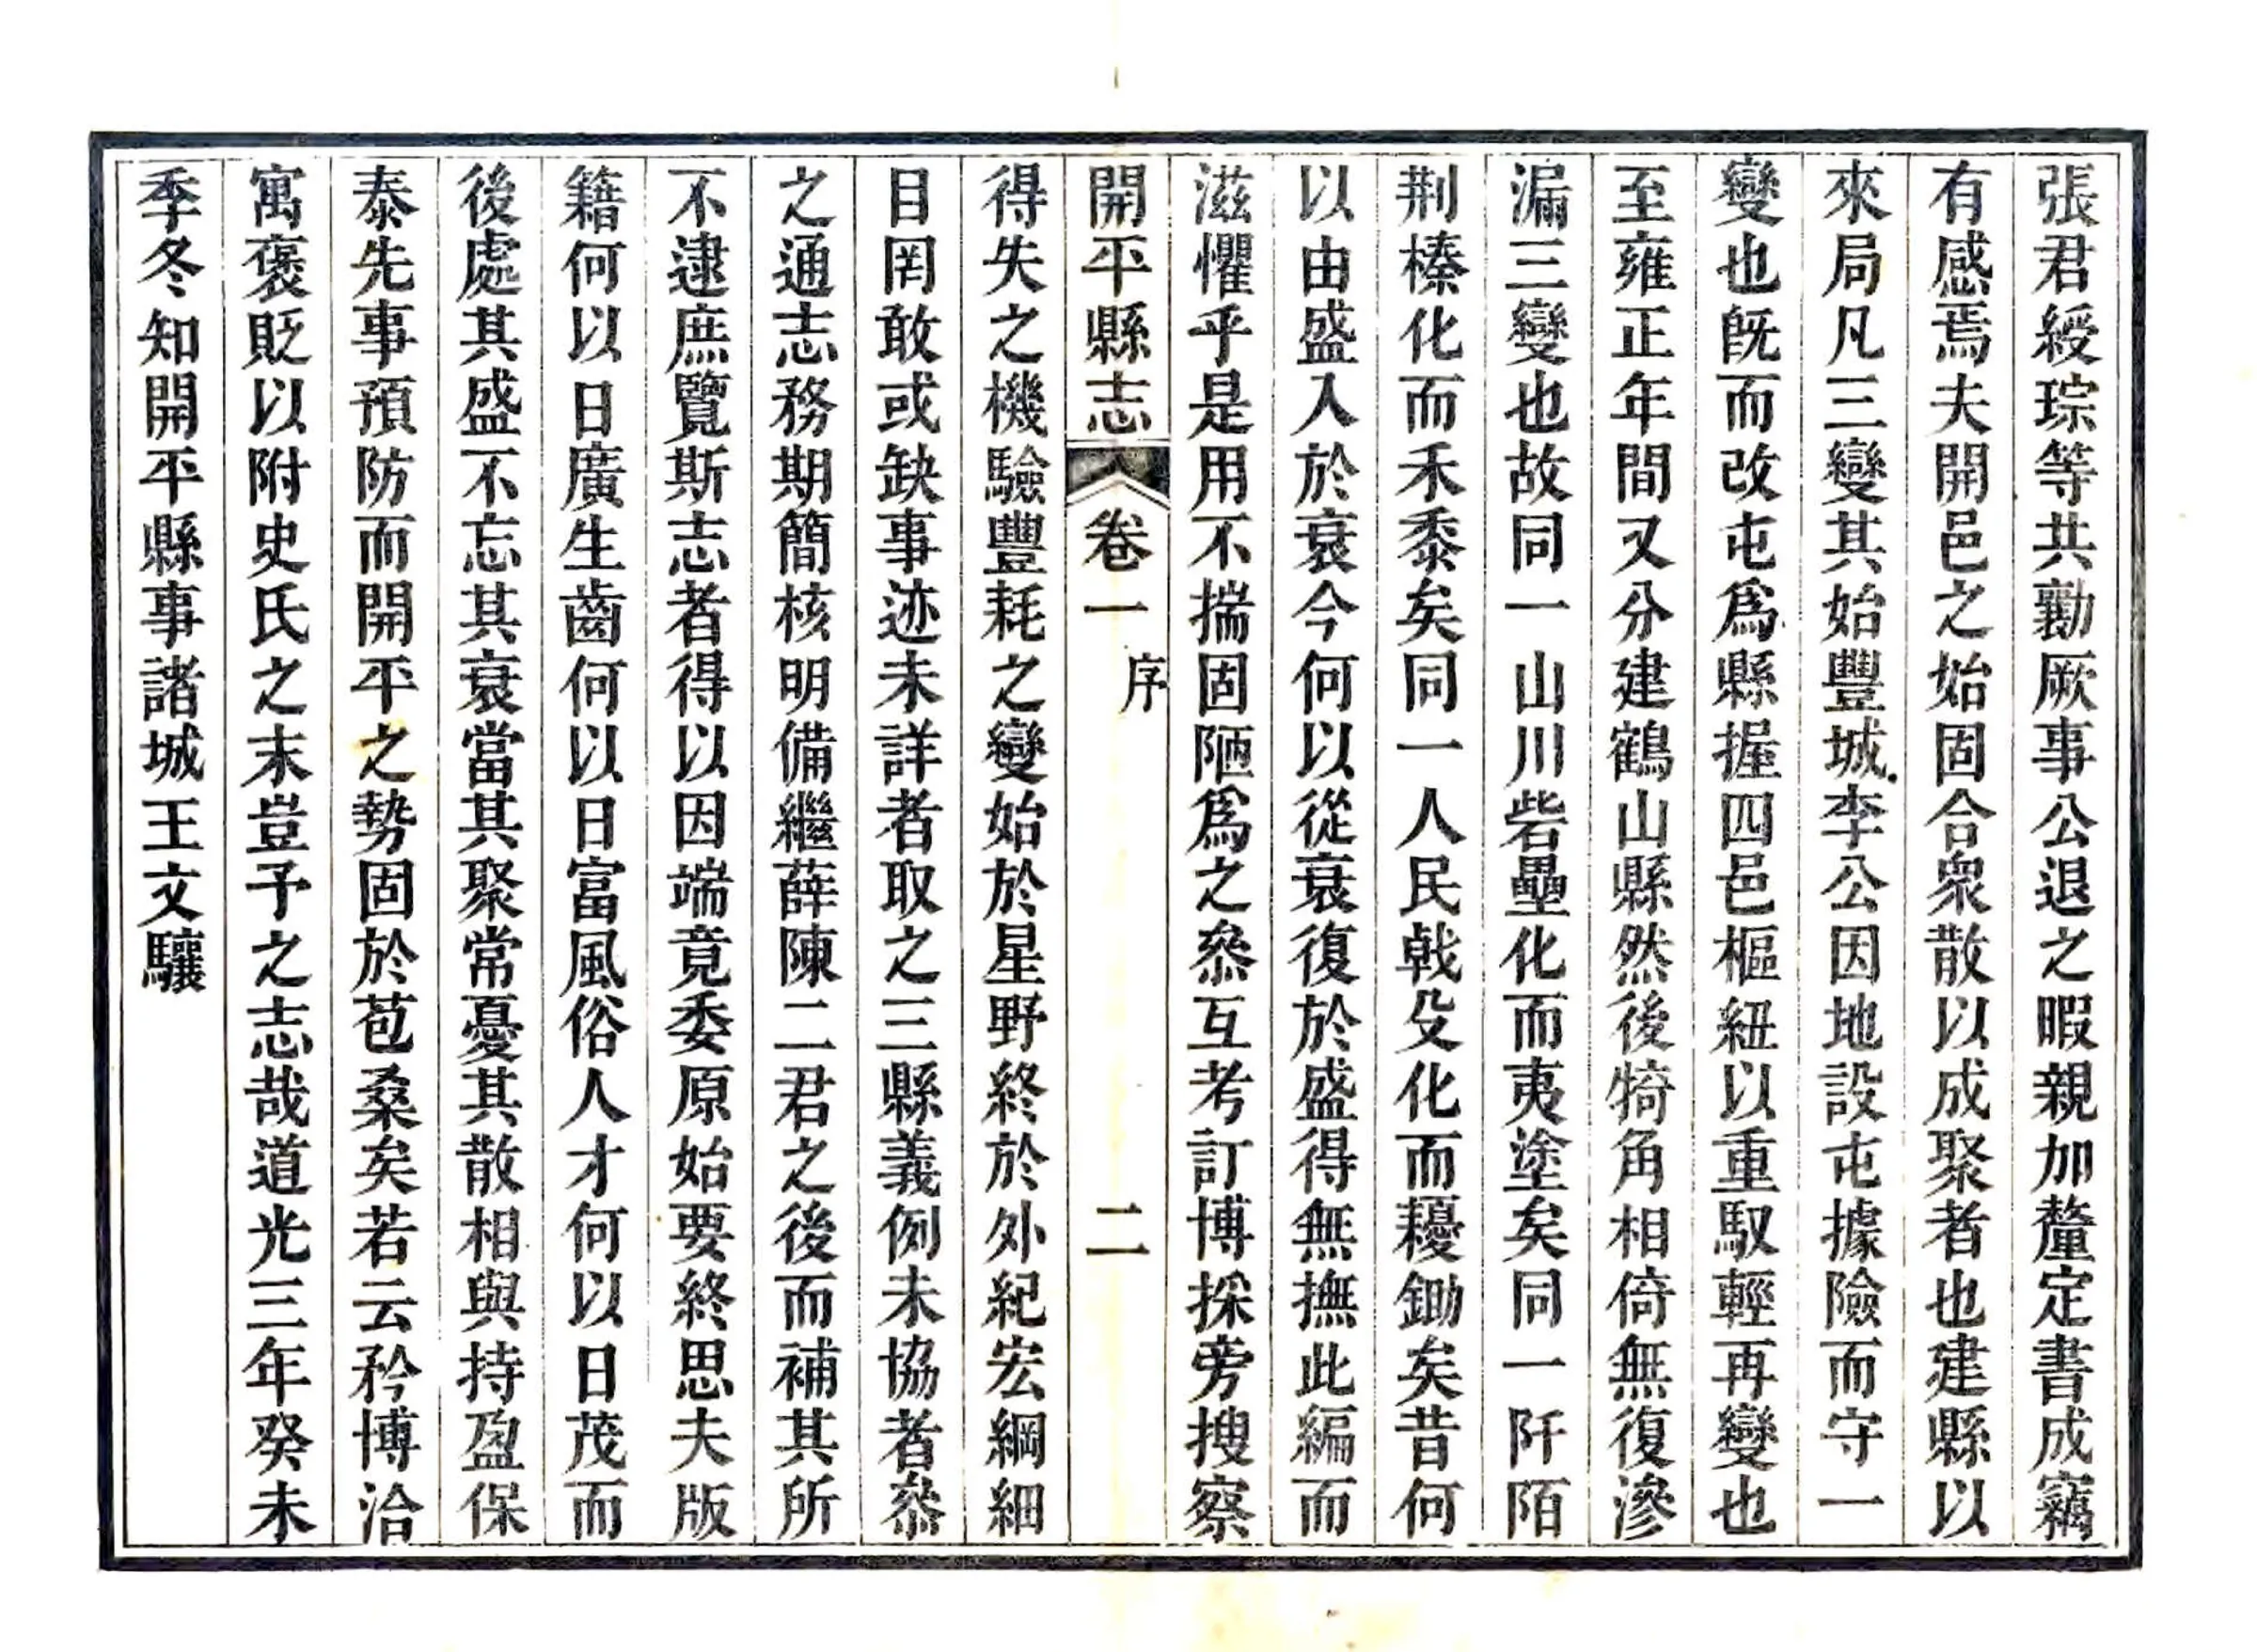 張君綬琮等共勷厥事公退之暇親加釐定書成竊
有感焉夫開邑之始固合衆散以成聚者也建縣以
來局凡三變其始豐城李公因地設屯據險而守一
變也旣而改屯爲縣握四邑樞紐以重馭輕再變也
至雍正年間又分建鶴山縣然後犄角相倚無復滲
漏三變也故同一山川砦壘化而夷塗矣同一阡陌
荆榛化而禾黍矣同一人民戟殳化而耰鋤矣昔何
以由盛入於衰今何以從衰復於盛得無撫此編而
滋懼乎是用不揣固陋爲之叅互考訂博採旁搜察
開平縣志 卷一 序 二
得失之機驗豐耗之變始於星野終於外紀宏綱細
目罔敢或缺事迹未詳者取之三縣義例未協者叅
之通志務期簡核明備繼薛陳二君之後而補其所
不逮庶覽斯志者得以因端竟委原始要終思夫版
籍何以日廣生齒何以日富風俗人才何以日茂而
後處其盛不忘其衰當其聚常憂其散相與持盈保
泰先事預防而開平之勢固於苞桑矣若云矜博洽
寓褒貶以附史氏之末豈予之志哉道光三年癸未
季冬知開平縣事諸城王文驤